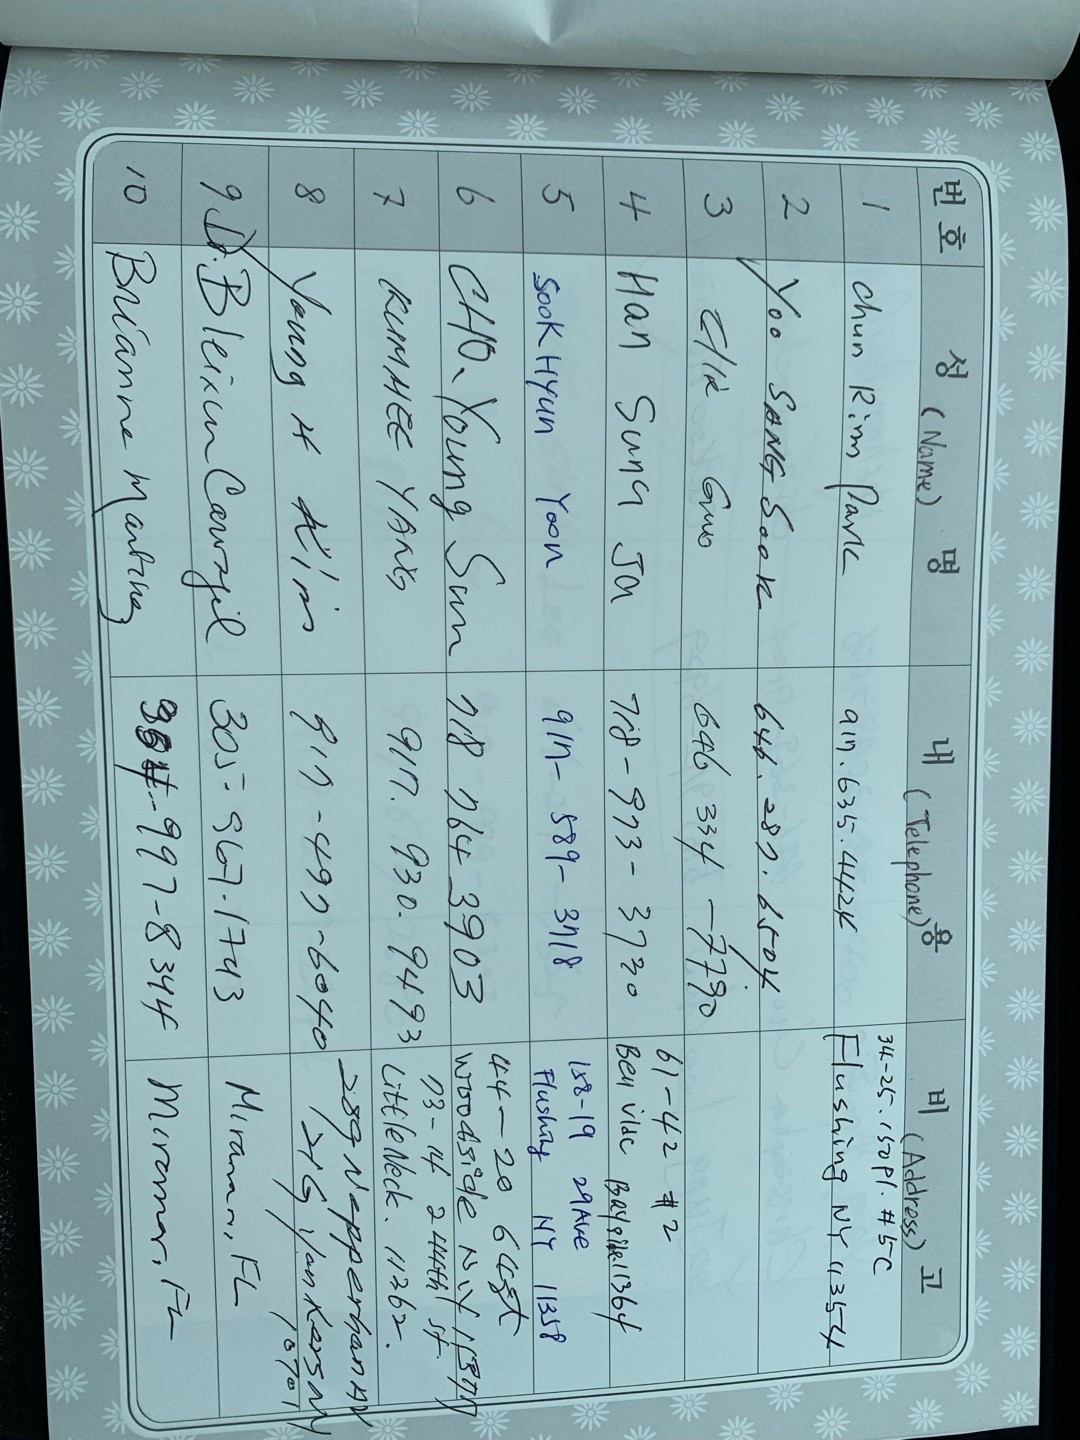 번 호 성 (Name) 명 내 (Telephone) 용 비 (Address) 고
1 Chun Rim Park 917.635.4424 34-25.150pl. #5C
Flushing NY 11354
2 Yoo SANG Sook 646.287.6504
3 Guo 646 334-7790
4 Han Sung Ja 718-973-3730 61-42 #2
Bell vilac Bayside 11364
5 SOOK HYUN Yoon 917-589-3718 158-19 29AVE
Flushing NY 11358
6 CHO. Young Sun 718 764 3903 44-20 64st
Woodside NY 11377
7 KUMHEE YANG 917.930.9493 73-14 244th st.
Little Neck. 11362.
8 Young H Kim 917-497-6040 289 Nepperhan AV
#G Yonkers NY
10701
9 Dr. Bleixen 305-967-1743 Miramar, FL
10 Brianne Martinez -997-8344 Miramar, FL